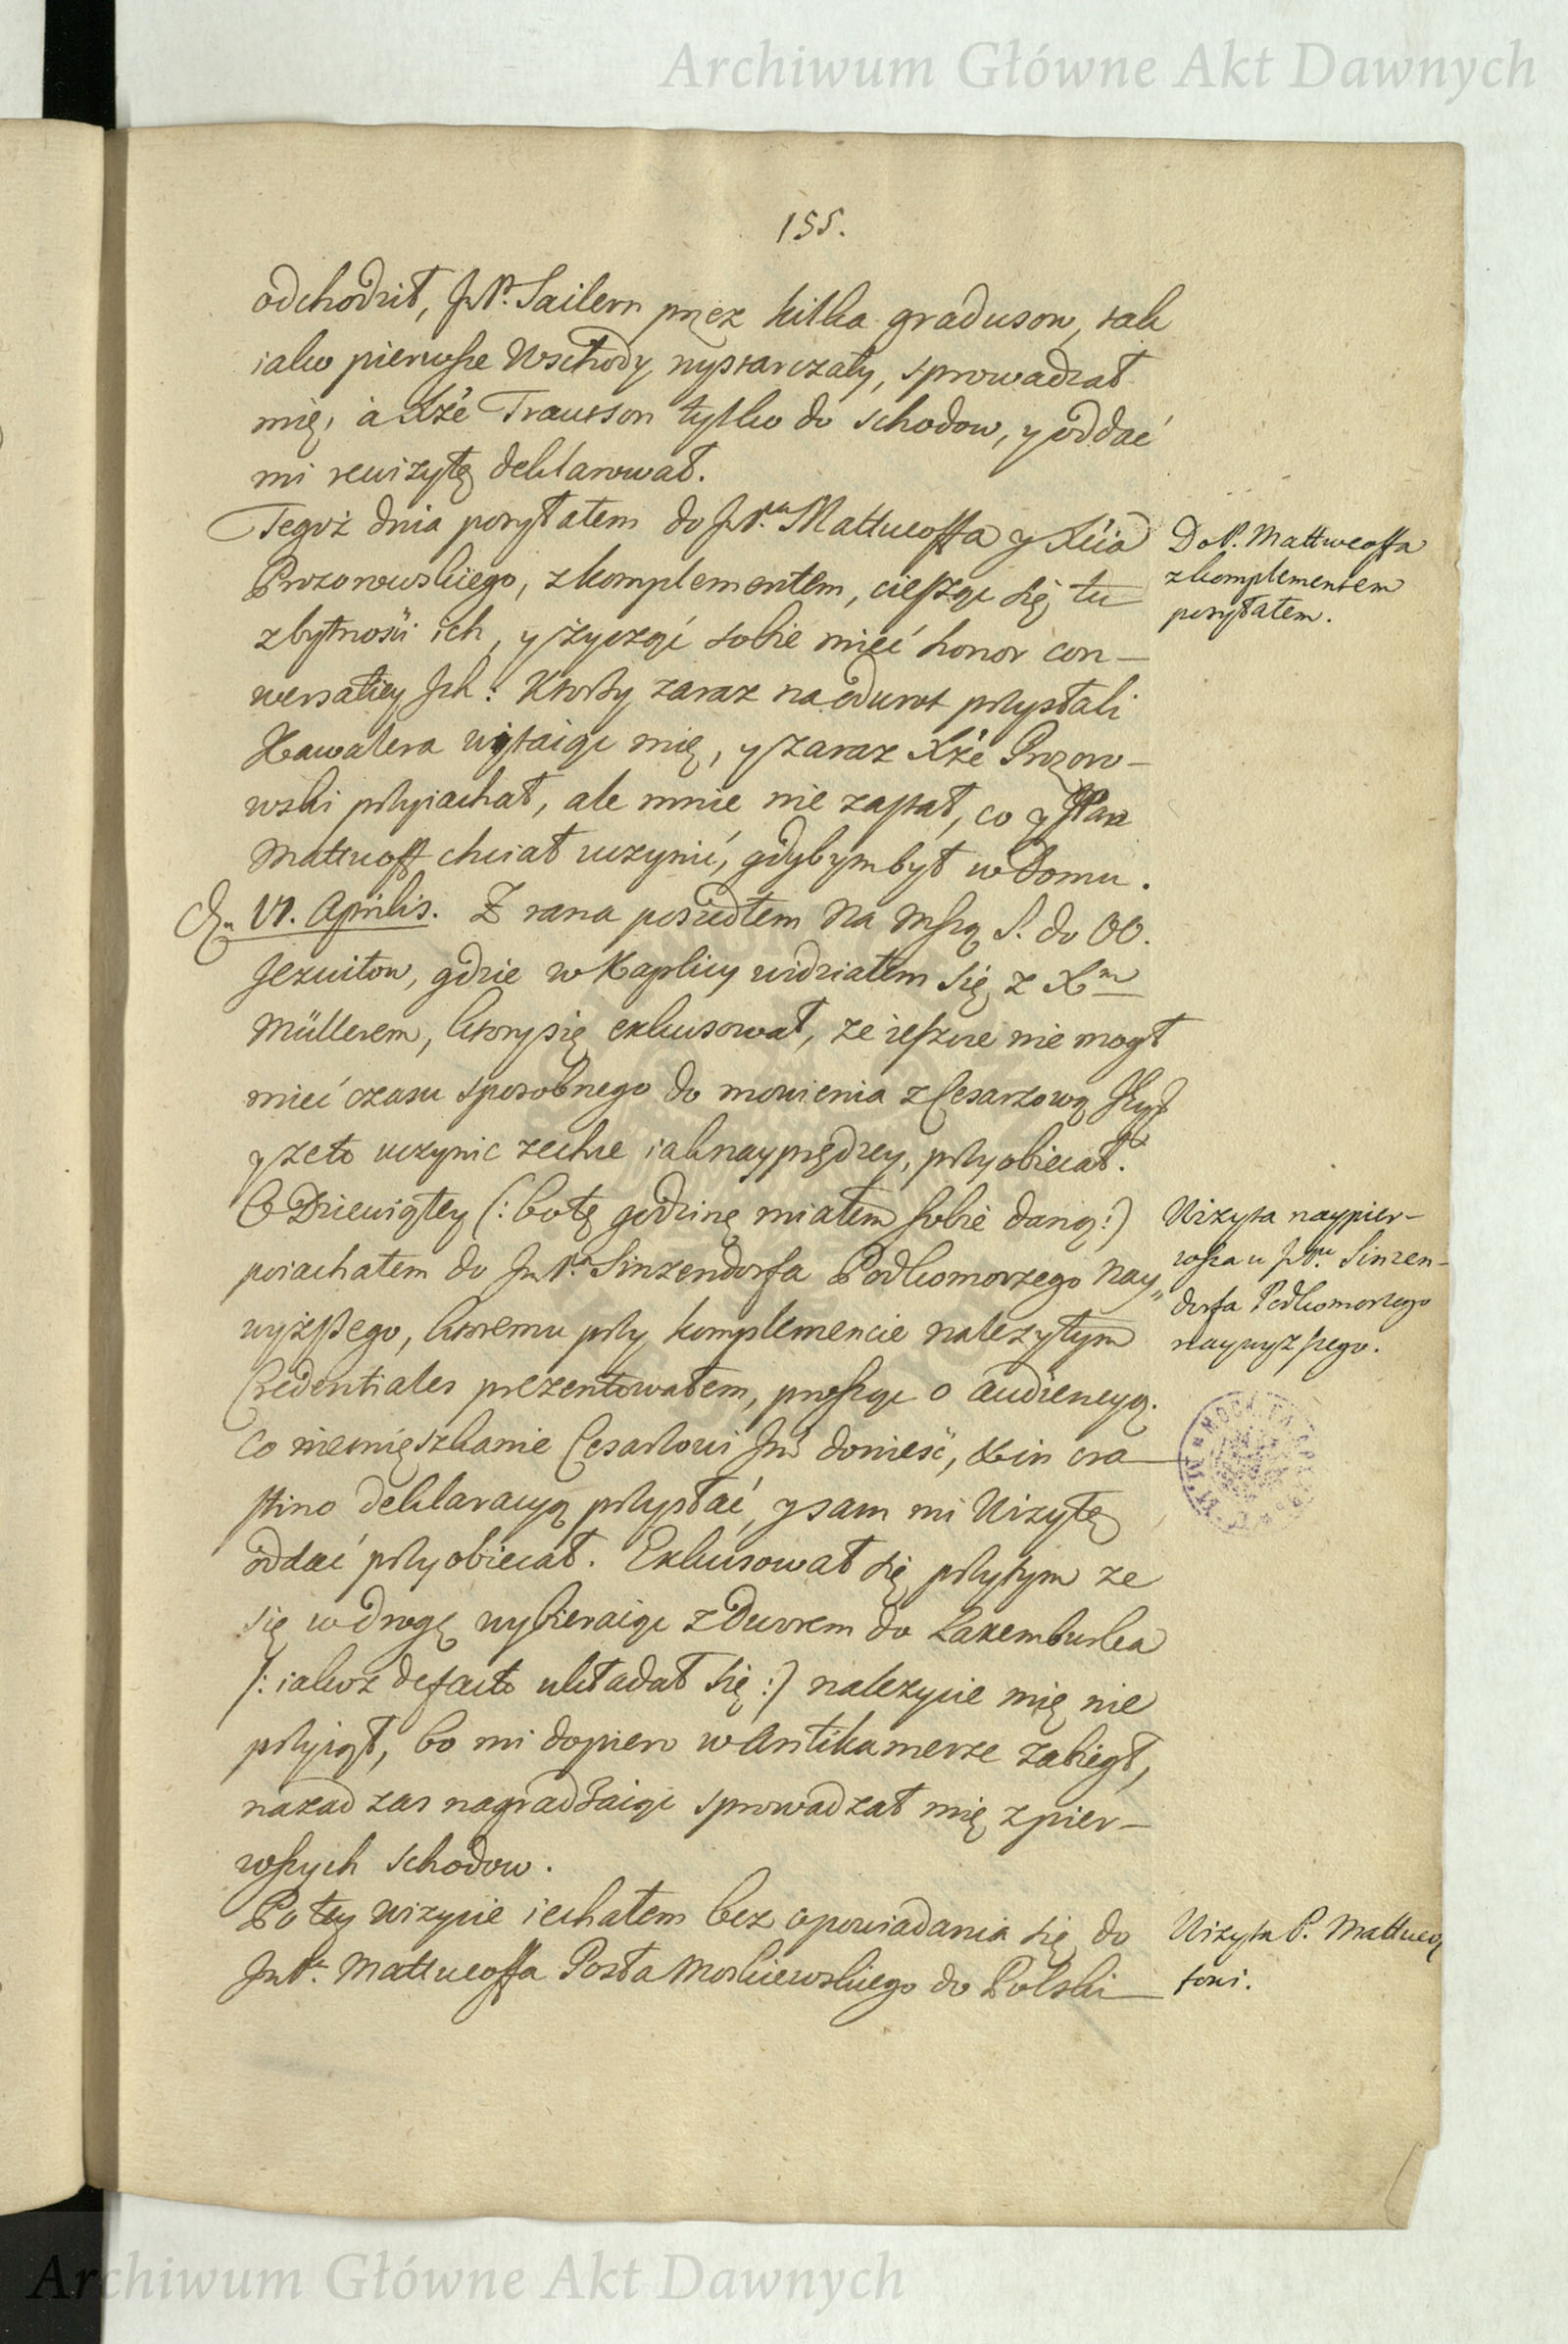 Archiwum Główne Akt Dawnych
155.
odchodził, JmP. Sailern przez kilka gradusow, tak
iako pierwsze Wschody wystarczały, sprowadzał
mię, à Xże Trautson tylko do schodow, y oddać
mi rewizytę deklarował.
Tegoż dnia posyłałem do JmPna Mattueoffa y Xcia
Prozorowskiego, z komplementem, ciesząc się tu
z bytności ich, y życząć sobie mieć honor con-
wersatiey Ich: Ktorzy zaraz na odwrot przysłali
Kawalera witaiąc mię, y zaraz Xże Prozoro-
wski przyiachał, ale mnie nie zastał, co y JPan
Mattueoff chciał uczynić, gdybym był w Domu.
Dn. VI. Aprilis. Z rana poszedłem na Mszą S. do OO.
Jezuitow, gdzie w Kaplicy widziałem się z Xm
Müllerem, ktory się exkusował, ze ieszcze nie mogł
mieć czasu sposobnego do mowienia z Cesarzową
y ze to uczynic zechce iak nayprędzey, przyobiecał.
O Dziewiątey (: bo tę godzinę miałem sobie daną:)
poiachałem do JmPna Sinzendorfa Podkomorzego Nay„
wyższego, ktoremu przy komplemencie należytym
Credentiales prezentowałem, prosząc o audiencyą.
Co niemięszkanie Cesarzowi Jmś donieść, & in cra-
stino deklaracyą przysłać, y sam mi Wizytę
oddać przyobiecał. Exkusował się przytym ze
się w drogę wybieraiąc z Dworem do Laxemburka
/: iakoż de facto układał się :/ należycie mię nie
przyiął, bo mi dopiero w Antikamerze zabiegł,
nazad zas nagradzaiąc sprowadzał mię z pier-
wszych schodow.
Po tey wizycie iechałem bez opowiadania się do
JmP. Mattueoffa Posła Moskiewskiego do Polski
Do P. Mattweoffa
z komplementem
posyłałem.
Wizyta naypier-
wsza u JPna Sinzen-
dorfa Podkomorzego
naywyzszego.
Wizyta P. Mattueo
fowi.
Archiwum Główne Akt Dawnych